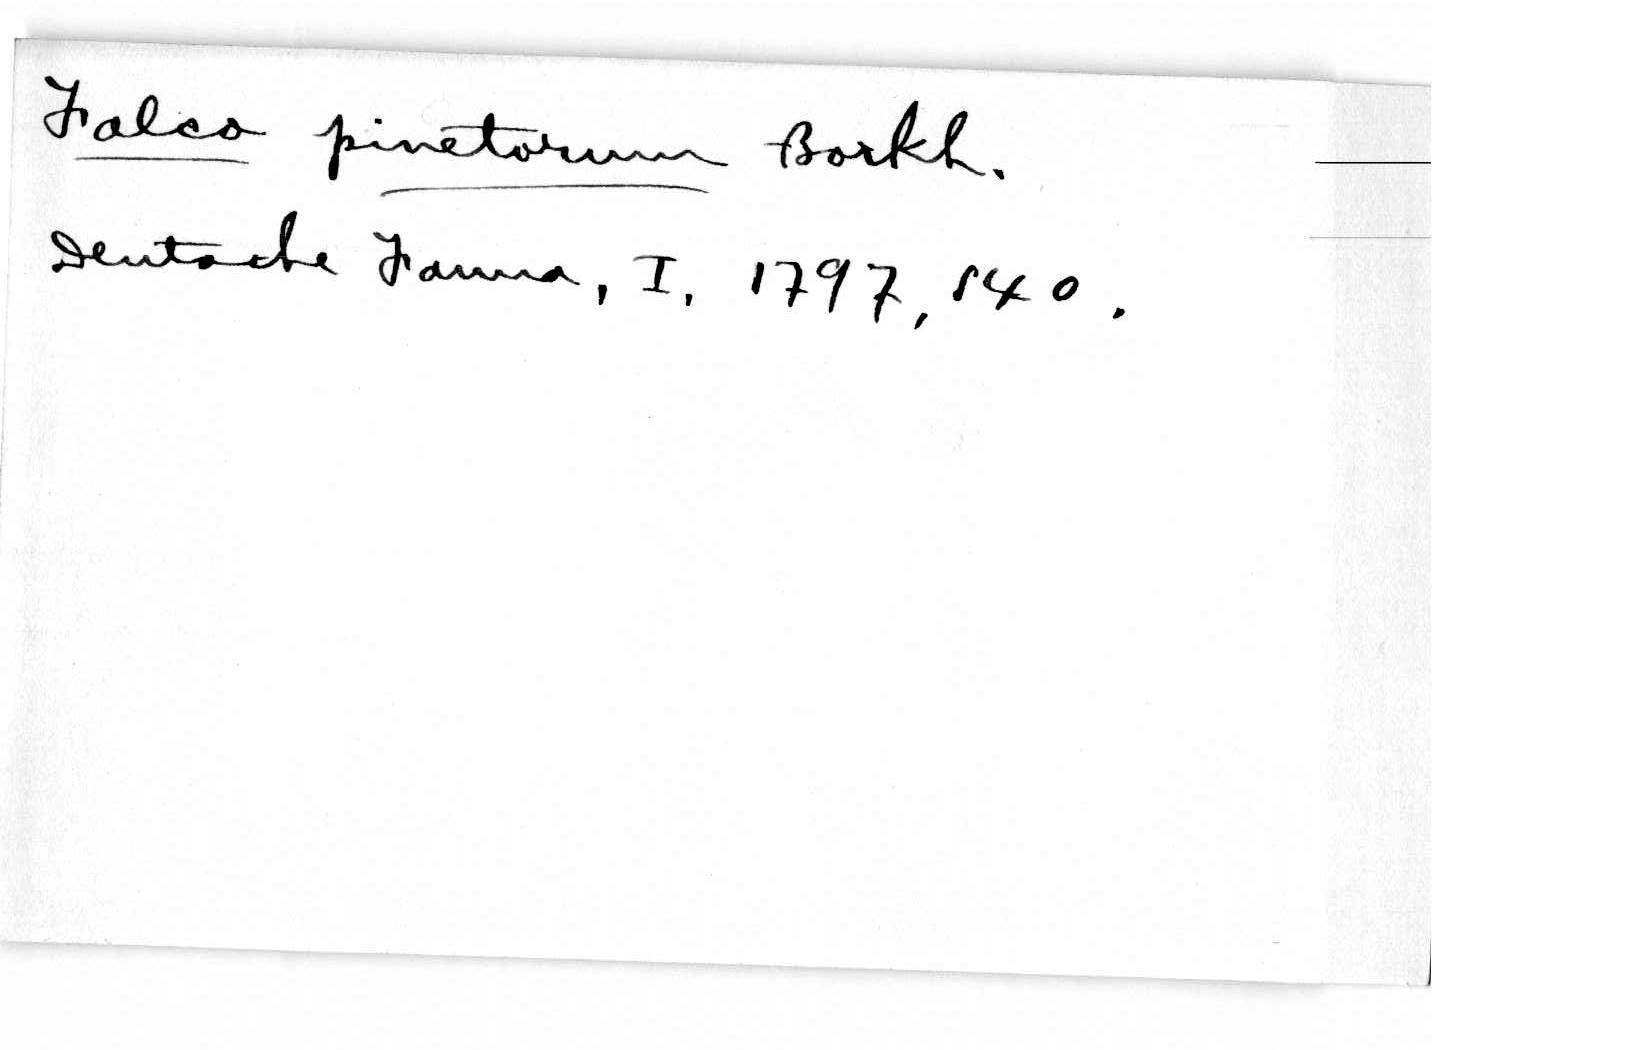 Falco pinetorum Borkh.
Deutsche Fauna, I, 1797, 540.